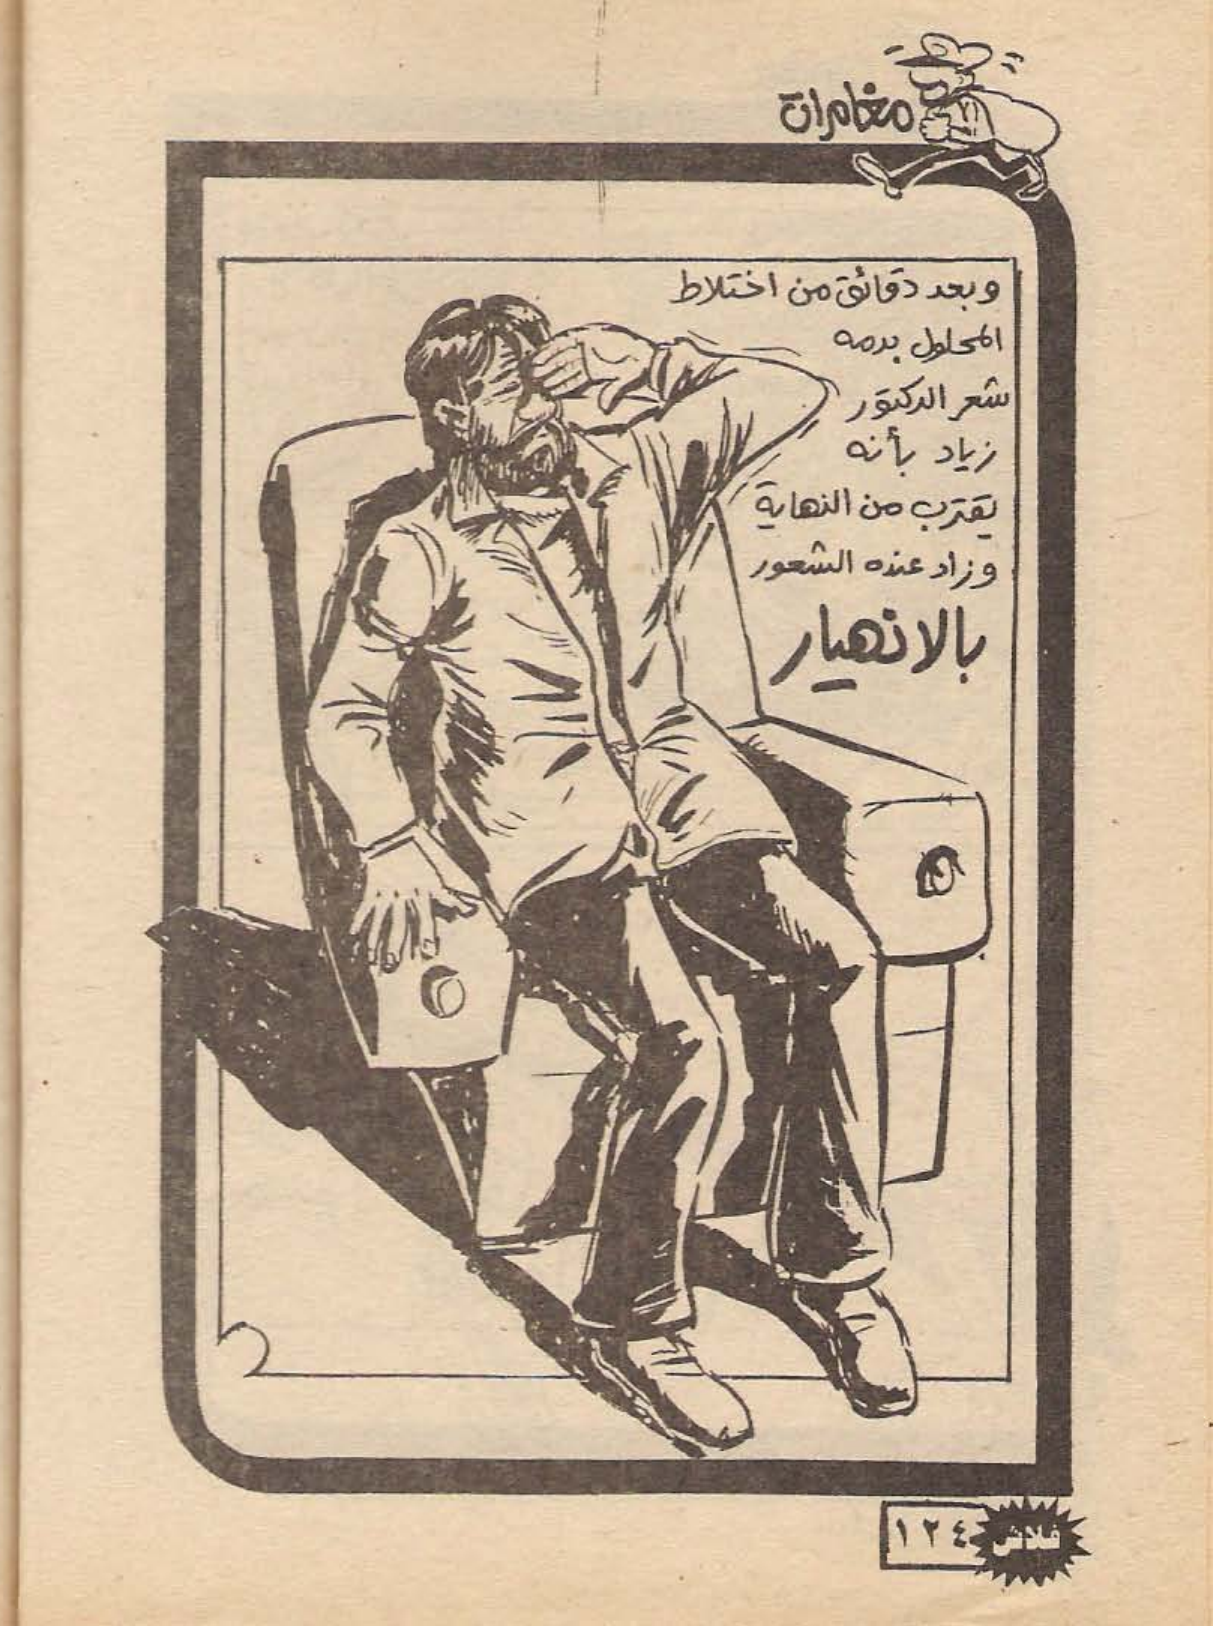 مغامرات
وبعد دقائق من اختلاط
المحلول بدمه
شعر الدكتور
زياد بأنه
يقترب من النهاية
وزاد عنده الشعور
بالانهيار
فلاش ١٢٤